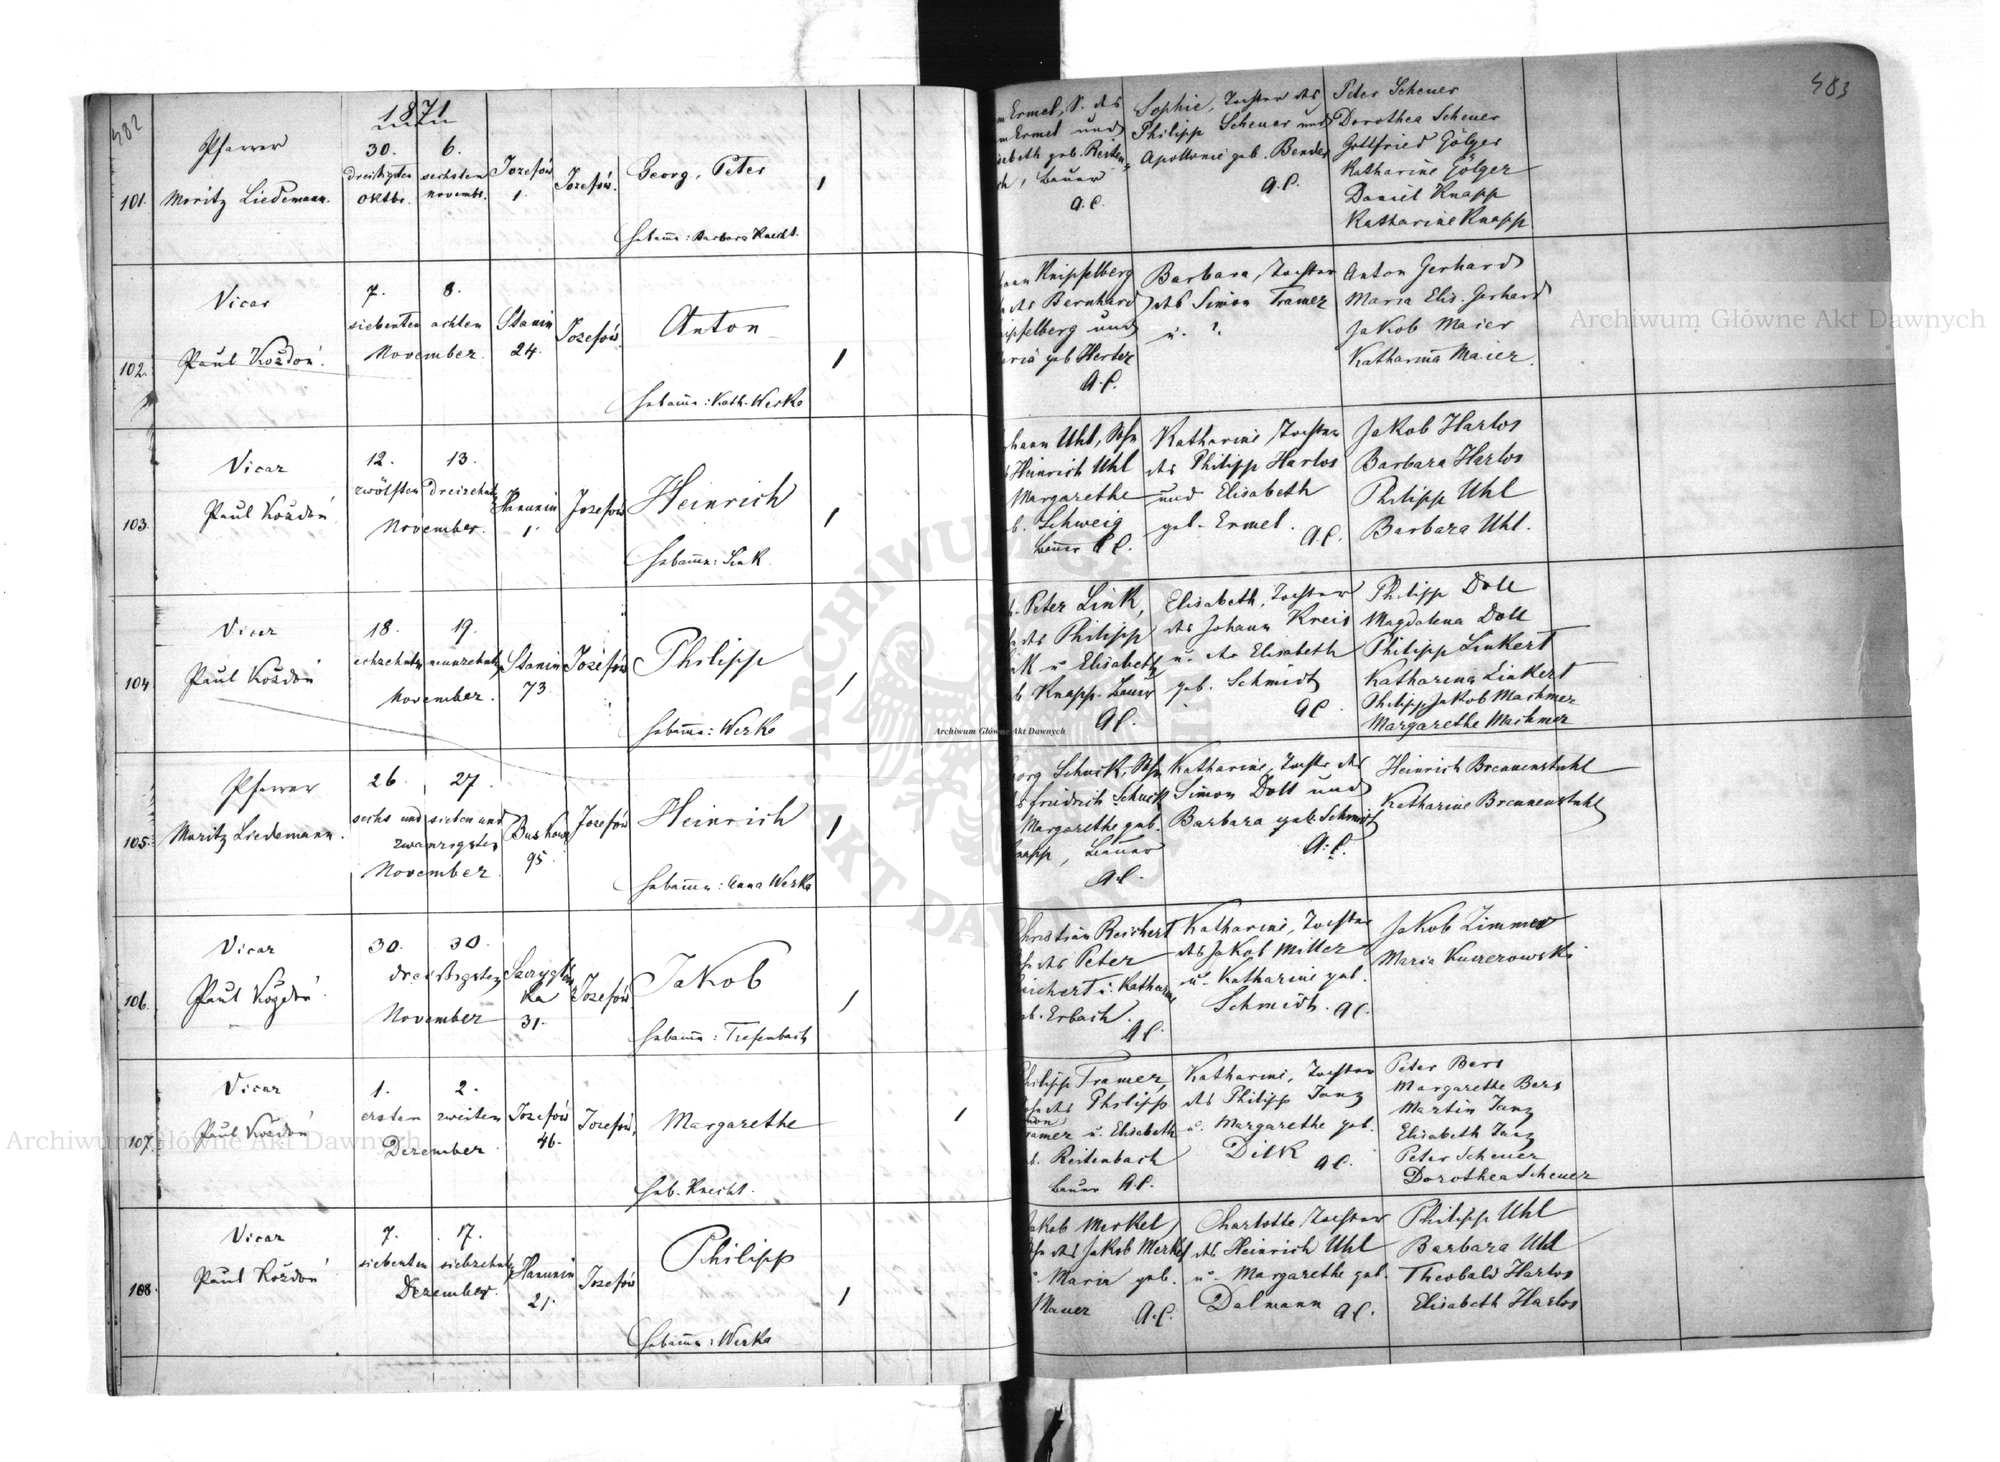 482
1871
Pfarrer
Moritz Liedemann.
101.
30.
dreißigsten
Oktbr.
6.
sechsten
novembr.
Josefów
1.
Josefów.
Georg, Peter
Hebamme: Barbara Knecht.
Vicar
Paul Kozdoń.
102.
7.
siebenten
8.
achten
November.
Stanin
24.
Josefów
Anton
Hebamme: Kath. Werka
Vicar
Paul Kozdoń
103.
12.
zwölften
13.
November.
Hanunin
1.
Josefów
Heinrich
Hebamme: Link.
Vicar
Paul Kozdoń
104
18.
19.
November.
Stanin
73.
Josefów
Philipp
Hebamme: Werka
Pfarrer
Moritz Liedemann.
105.
26.
27.
sechs und
sieben und
zwanzigsten
November
95.
Josefów
Heinrich
Hebamme: Anna Werka
Vicar
Paul Kozdoń
106.
30.
30.
dreißigsten
November
31.
Josefów
Jakob
Hebamme: Tiefenbach
Vicar
Paul Kozdoń
107.
1.
ersten
2.
zweiten
Dezember
Josefów
46.
Josefów,
Margarethe
Heb. Knecht.
Vicar
Paul Kozdoń
108.
7.
siebenten
17.
Dezember.
Hanunin
21.
Josefów
Philipp
Hebamme: Werka
483
Ermel, S. des
Ermel und
geb. Reiten-
Bauer
A.C.
Sophie, Tochter des
Philipp Scheuer und
Apollonie geb. Bender
A.C.
Peter Scheuer
Dorothea Scheuer
Gottfried Gölger
Katharine Gölger
Daniel Knapp
Katharine Knapp
Knipfelberg
des Bernhard
und
geb Herter
A.C.
Barbara, Tochter
des Simon Tramer
u. ?
Anton Gerhard
Maria Elis. Gerhard
Jakob Maier
Katharina Maier.
Uhl, Sohn
Heinrich Uhl
Margarethe
Schweig
Bauer A.C.
Katharine Tochter
des Philipp Harlos
und Elisabeth
geb. Ermel. A.C.
Jakob Harlos
Barbara Harlos
Philipp Uhl
Barbara Uhl.
Peter Link,
des Philipp
u Elisabeth
Knapp. Bauer
A.C.
Elisabeth, Tochter
des Johann Kreis
u. der Elisabeth
geb. Schmidt
A.C.
Philipp Doll
Magdalena Doll
Philipp Linkert
Katharina Linkert
Philipp Jakob Machmer
Margarethe Machmer
Schuck, Sohn
Friedrich Schuck
Margarethe geb.
Bauer
A.C.
Katharine, Tochter des
Simon Doll und
Barbara geb. Schmidt
A.C.
Heinrich Brennenstuhl
Katharine Brennenstuhl
Christian Reichert
des Peter
u. Katharine
Erbach.
A.C.
Katharine, Tochter
des Jakob Miller
u. Katharine geb.
Schmidt. A.C.
Jakob Zimmer
Maria Kuczerowski
Philipp Tramer,
des Philipp
u. Elisabeth
Reitenbach
Bauer A.C.
Katharine, Tochter
des Philipp Janz
u. Margarethe geb.
Dilk A.C.
Peter Bers
Margarethe Bers
Martin Janz
Elisabeth Janz
Peter Scheuer
Dorothea Scheuer
Jakob Merkel
des Jakob Merkel
Maria geb.
Mauer A.C.
Charlotte Tochter
des Heinrich Uhl
u. Margarethe geb.
Dalmann A.C.
Philipp Uhl
Barbara Uhl
Theobald Harlos
Elisabeth Harlos
Archiwum Główne Akt Dawnych
Archiwum Główne Akt Dawnych
Archiwum Główne Akt Dawnych